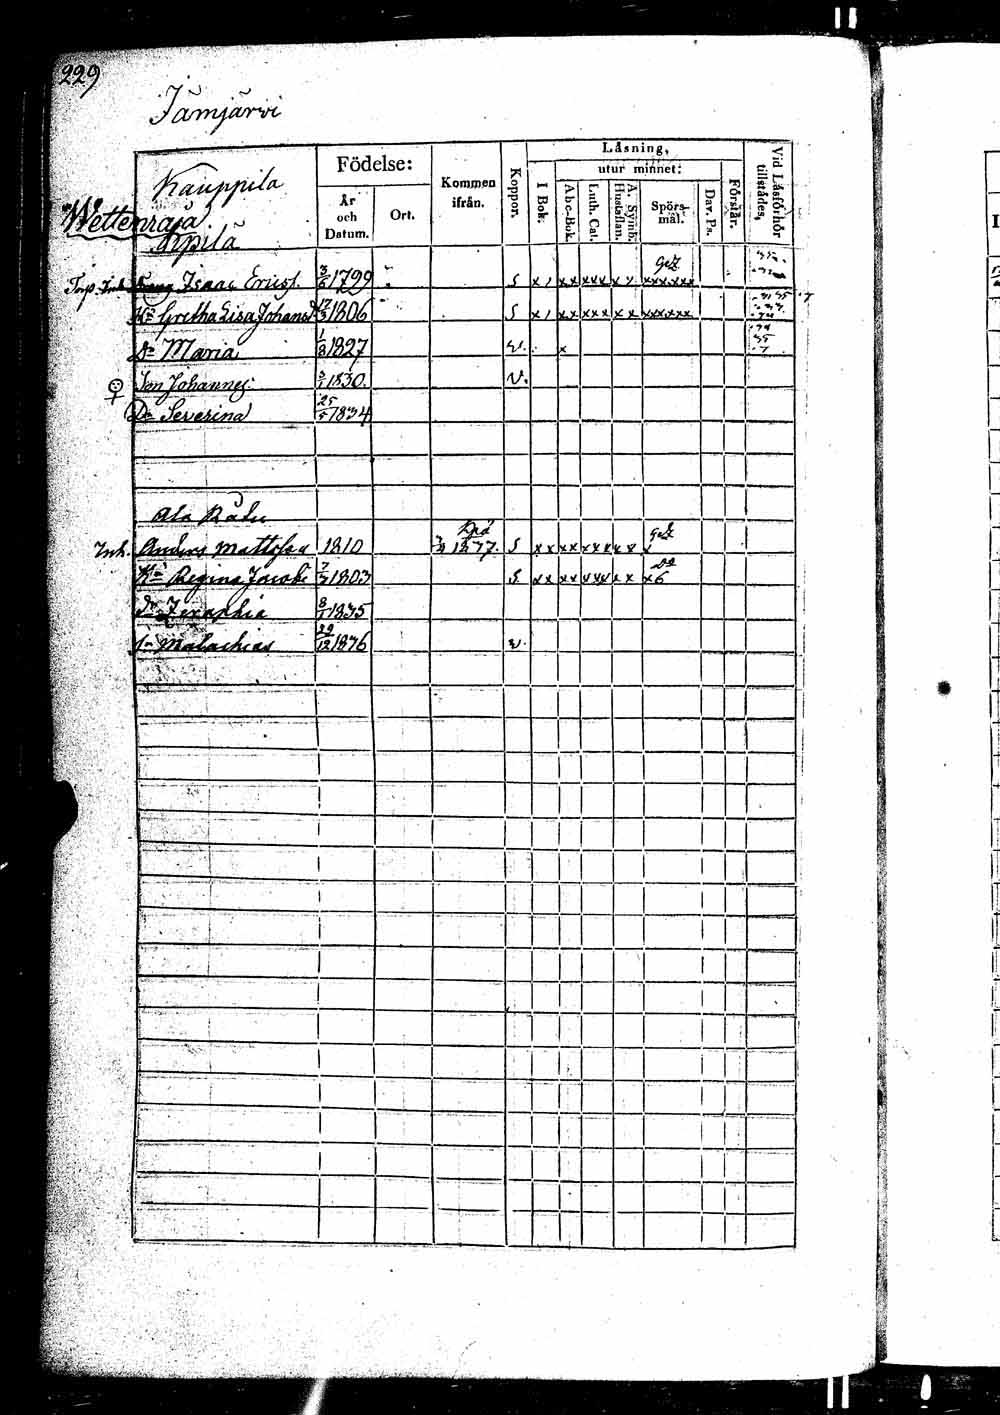 229
Jämjärvi
Kauppila
Födelse:
År och Datum.
Ort.
Kommen ifrån.
Koppor.
Låsning,
I Bok.
utur minnet:
Abc-Bok.
Luth. Cat.
A. Symb. Hustaflan.
Spörsmål.
Dav. Ps.
Förstår.
Vid Låsförhör tillstädes,
Wettenraja
Torp. Inh. Isaac Ericss. 3/6 1799 S x / xx xxx x / xxxxxx
Hu Gretha Lisa Johansd 1806 S x / xx xxx x x xxxxxx
Dr Maria 1/8 1827 v. x
Son Johannes 1830. v.
Dr Severina 25/5 1834
Ala Ratu
Inh. Anders Mattsson 1810 1837. S x x xx xxx x x
Hu Regina Jacobs 1803 S x x xx xxx x x
dr Zeraphia 8/1 1835
sn Malachias 29/12 1836 v.